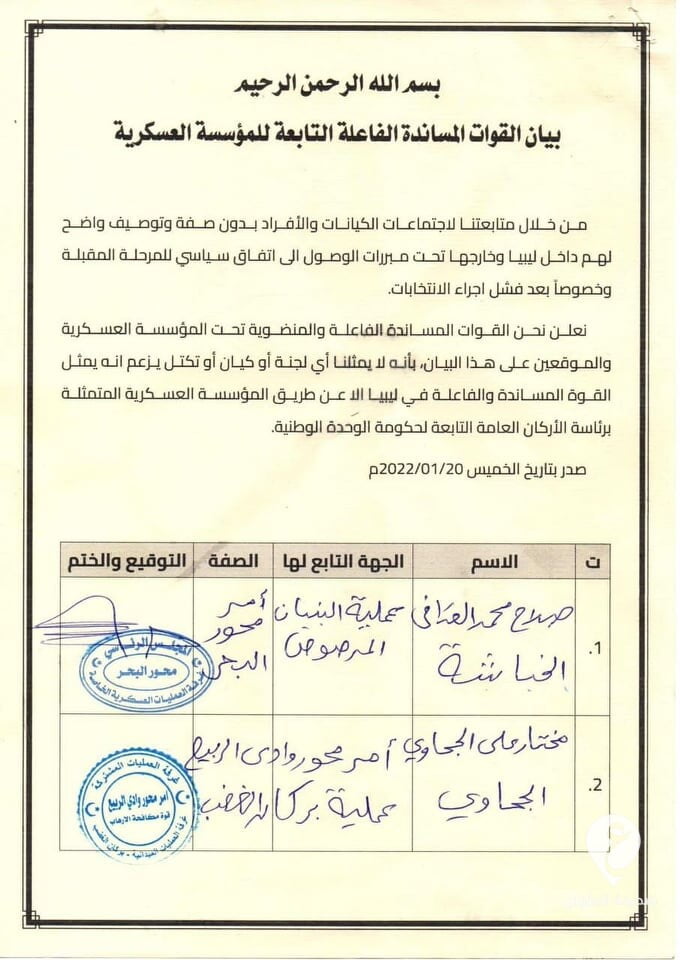 بسم الله الرحمن الرحيم
بيان القوات المساندة الفاعلة التابعة للمؤسسة العسكرية
من خلال متابعتنا لاجتماعات الكيانات والأفراد بدون صفة وتوصيف واضح
لهم داخل ليبيا وخارجها تحت مبررات الوصول الى اتفاق سياسي للمرحلة المقبلة
وخصوصاً بعد فشل اجراء الانتخابات.
نعلن نحن القوات المساندة الفاعلة والمنضوية تحت المؤسسة العسكرية
والموقعين على هذا البيان، بأنه لا يمثلنا أي لجنة أو كيان أو تكتل يزعم انه يمثل
القوة المساندة والفاعلة في ليبيا الا عن طريق المؤسسة العسكرية المتمثلة
برئاسة الأركان العامة التابعة لحكومة الوحدة الوطنية.
صدر بتاريخ الخميس 2022/01/20م
ت الاسم الجهة التابع لها الصفة التوقيع والختم
1. صلاح محمد القذافي عملية البنيان أمر محور
الخباشة المرصوص البحر
المجلس الرئاسي
محور البحر
غرفة العمليات العسكرية الخاصة
2. مختار علي الجحاوي أمر محور وادي الربيع
الجحاوي عملية بركان الغضب
غرفة العمليات المشتركة
أمر محور وادي الربيع
قوة مكافحة الارهاب
غرفة العمليات الميدانية - بركان الغضب